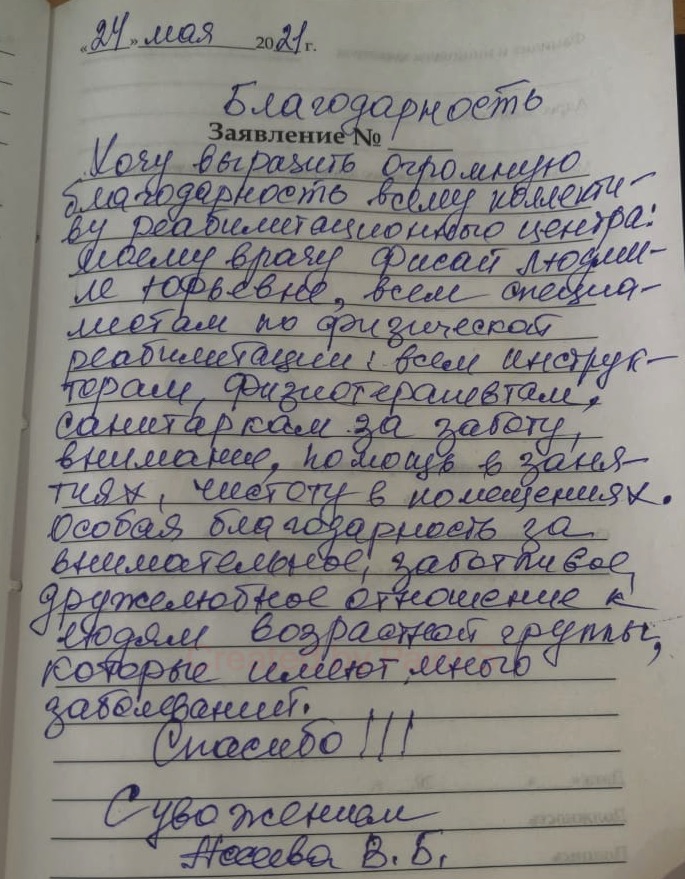 «24» мая 2021 г.
Благодарность
Заявление №
Хочу выразить огромную
благодарность всему коллекти-
ву реабилитационного центра:
моему врачу Фисай Людми-
ле Юрьевне, всем специа-
листам по физической
реабилитации: всем инструк-
торам, физиотерапевтам,
санитаркам за заботу,
внимание, помощь в заня-
тиях, чистоту в помещениях.
Особая благодарность за
внимательное, заботливое,
дружелюбное отношение к
людям возрастной группы,
которые имеют много
заболеваний.
Спасибо!!!
С уважением
В. Б.